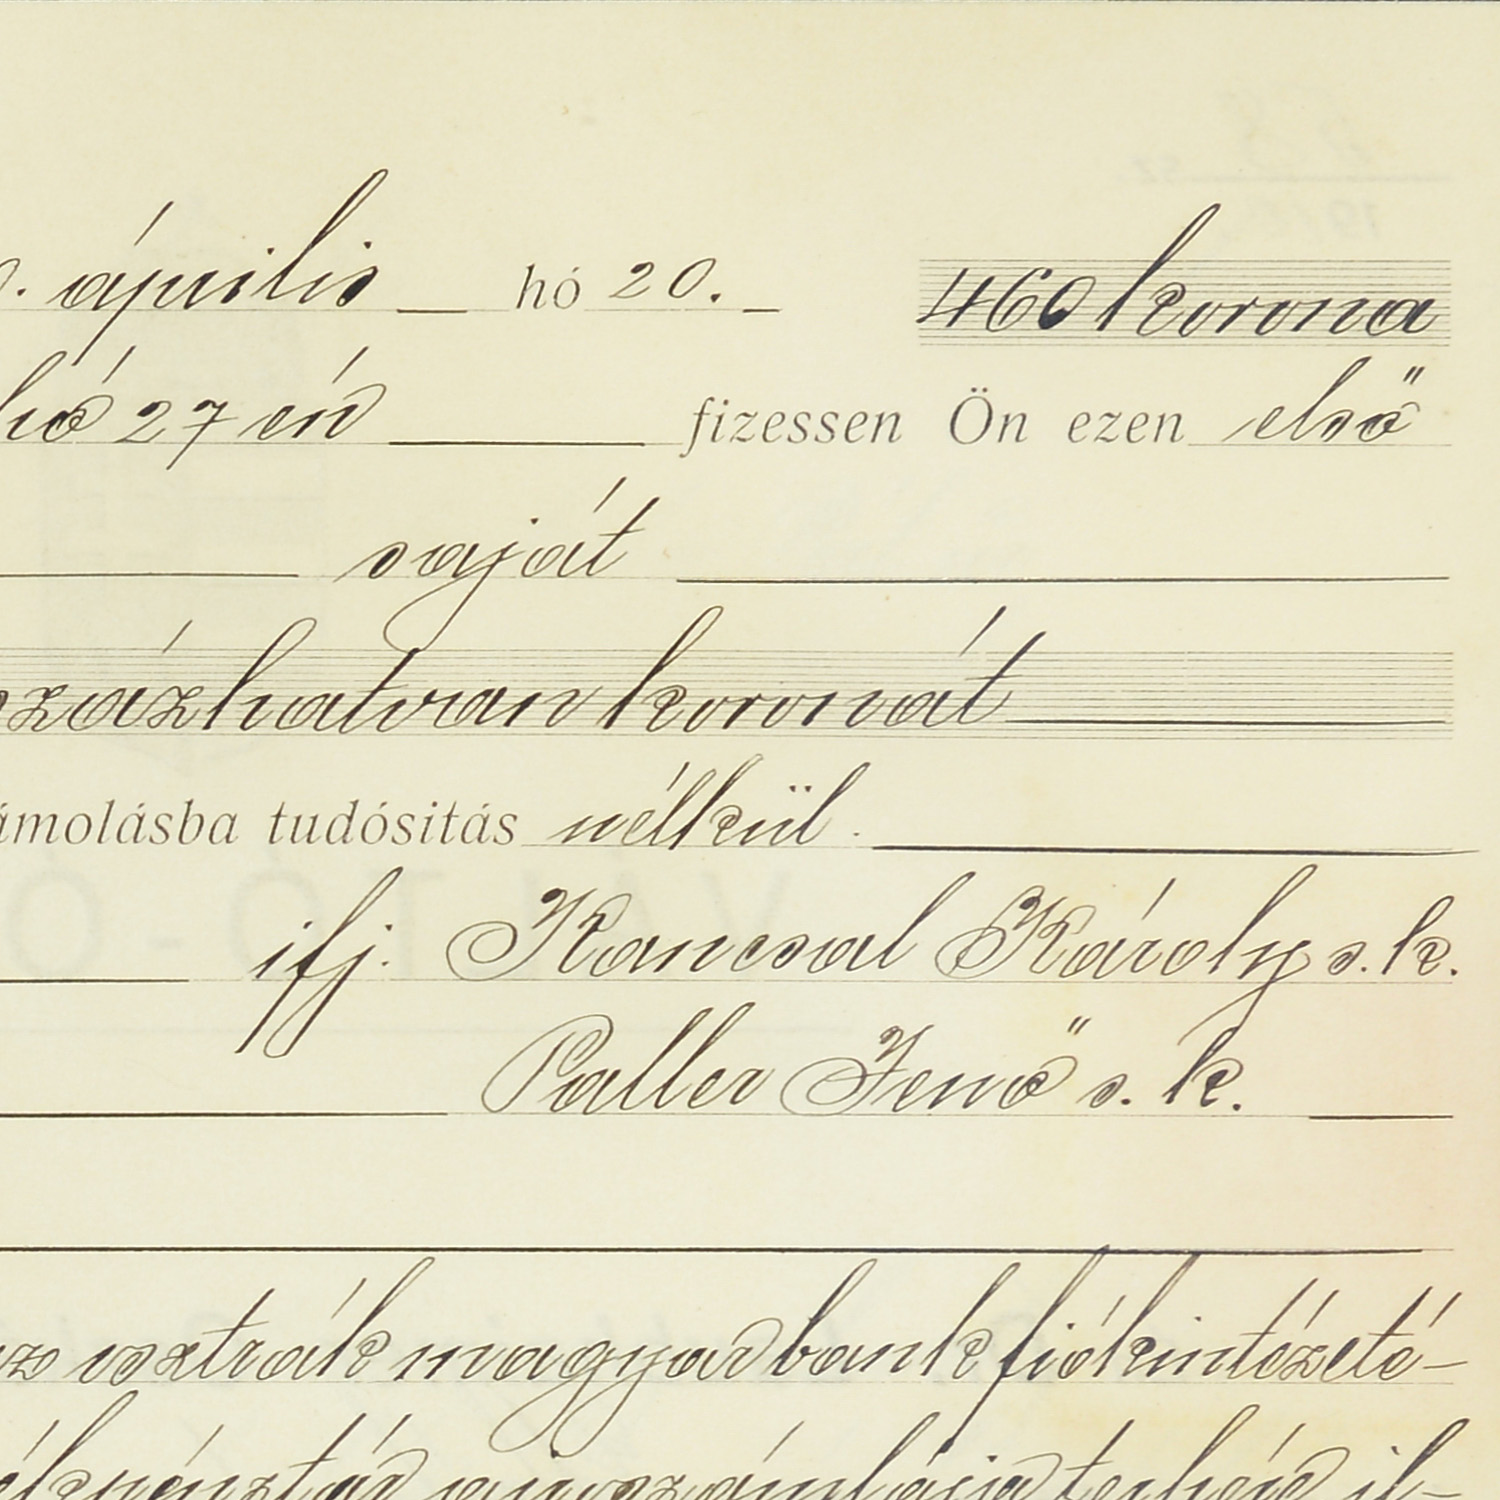 április hó 20. 460 korona
hó 27 én fizessen Ön ezen első
saját
százhatvan koronát
ámolásba tudósitás nélkül.
ifj. Kancsal Károly s. k.
Paller Jenő s. k.
az osztrák magyar bank fiókintézeté-
terhére il-